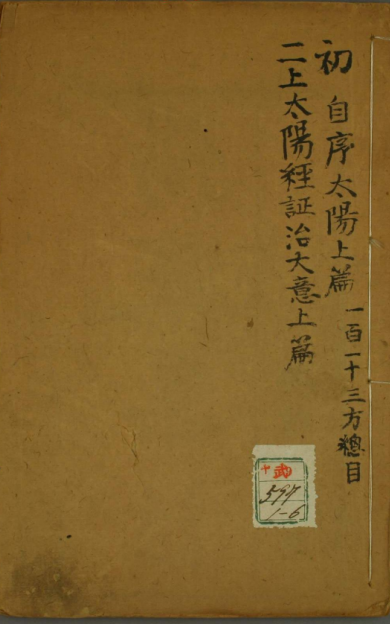 初 自序太陽上篇 一百一十三方總目
二上太陽經証治大意上篇
ヤ 武
597
1-6